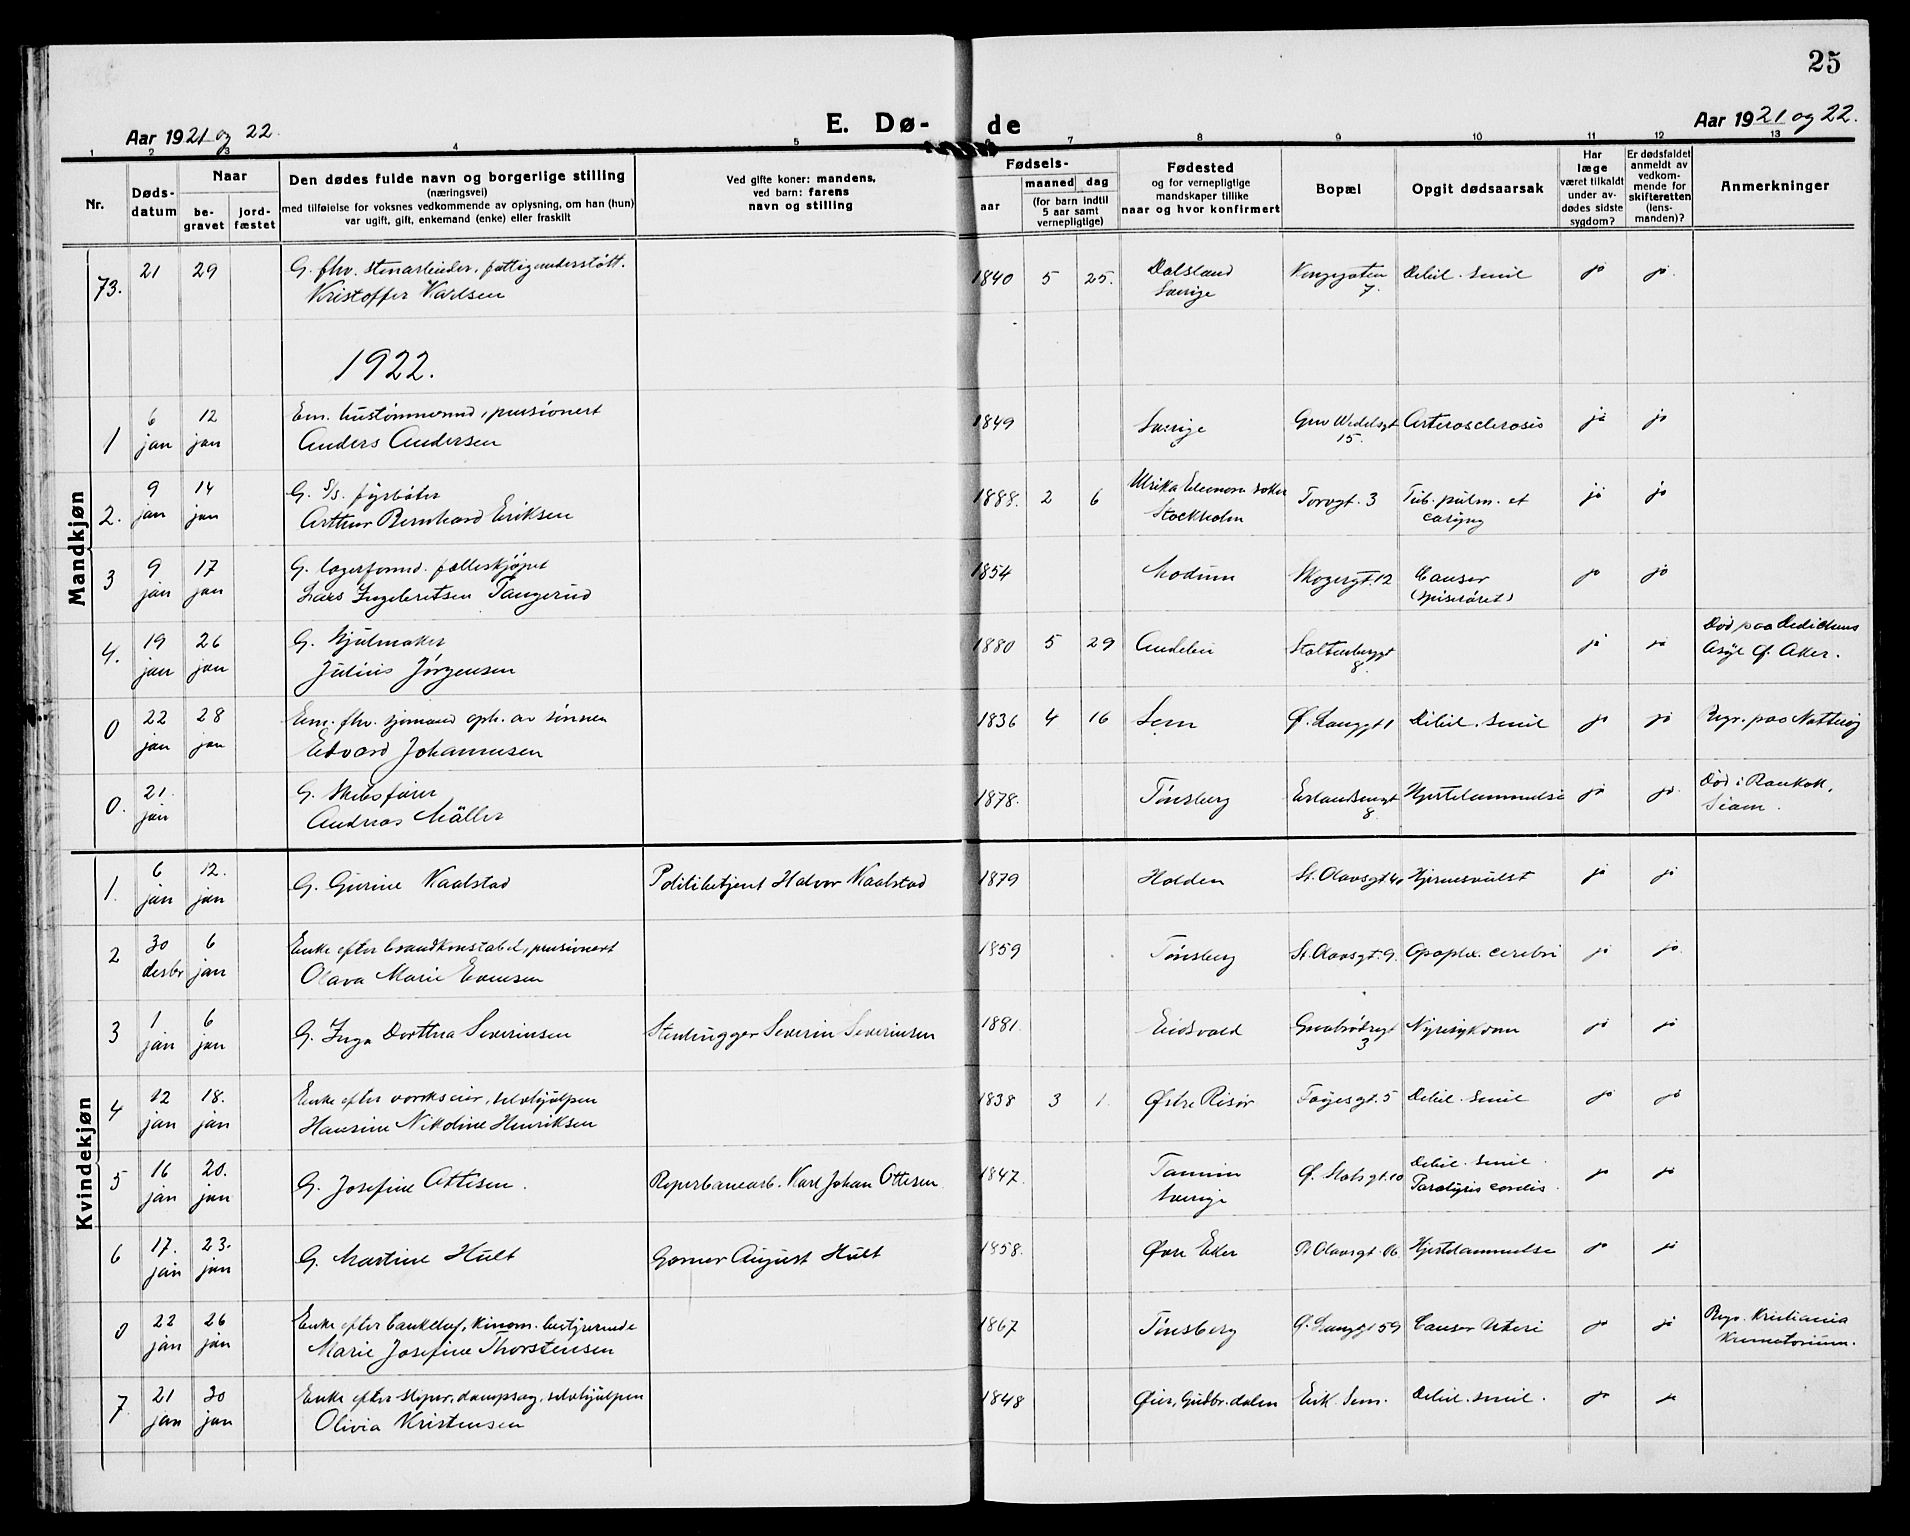 25
Aar 1921 og 22.
E. Dø- de
Aar 1921 og 22.
1 2 3 4 5 7 8 9 10 11 12 13
Nr.
Døds-
datum
Naar
be-
gravet
jord-
fæstet
Den dødes fulde navn og borgerlige stilling
(næringsvei)
med tilføielse for voksnes vedkommende av oplysning, om han (hun)
var ugift, gift, enkemand (enke) eller fraskilt
Ved gifte koner: mandens,
ved barn: farens
navn og stilling
Fødsels-
aar
maaned
dag
(for barn indtil
5 aar samt
vernepligtige)
Fødested
og for vernepligtige
mandskaper tillike
naar og hvor konfirmert
Bopæl
Opgit dødsaarsak
Har
læge
været tilkaldt
under av-
dødes sidste
sygdom?
Er dødsfaldet
anmeldt av
vedkom-
mende for
skifteretten
(lens-
manden)?
Anmerkninger
Mandkjøn
73. 21 29 G. fhv. stenarbeider, fattigunderstøtt. 1840 5 25. Dalsland Kongegaten Debil. senil ja ja.
Kristoffer Karlsen Sverige 7.
1922.
1 6 jan 12 jan Em. hustømmermd, pensionert 1849 Sverige Grev Wedelsgt Arterosclerosis ja ja
Anders Andersen 15.
2. 9 jan 14 jan G. S/S. fyrbøter 1888. 2 6 Ulrika Eleonora Torvgt. 3 Tub. pulm. et ja ja
Arthur Bernhard Eriksen Stockholm laryng
3 9 jan 17 jan G. lagerformd. fælleskjøpet 1854 Modum Skogergt. 12 Cancer ja ja
Lars Ingebretsen Tangerud (spiserøret)
4. 19 jan 26 jan G. Hjulmaker 1880 5 29 Andebu Stoltenbergt ja ja Død paa Dedichens
Julius Jørgensen 8. Asyl Ø. Aker.
0 22 jan 28 jan Em. fhv. sjømand oph. av sønnen 1836 4 16 Sem Ø. Langgt 1 Debil. senil ja ja Begr. paa Nøtterøy
Edvard Johannesen
0. 21. jan G. Skibsfører 1878. Tønsberg 8 Hjertelammelse ja ja. Død i Bankok,
Andreas Møller Siam.
Kvindekjøn
1. 6 jan 12. jan G. Gurine Kaalstad Politibetjent Halvor Kaalstad 1879 Holden St. Olavsgt. 40 Hjernesvulst ja ja
2 30 desbr 6 jan Enke efter brandkonstabel, pensionert 1859 Tønsberg St. Olavsgt. 9. Apoplex. cerebri ja ja.
Olava Marie Evensen
3 1 jan 6 jan G. Inga Dorthea Severinsen Stenhugger Severin Severinsen 1881. Eidsvold Graabrødregt Nyresykdom ja ja
3
4 12 jan 18. jan Enke efter verkseier, selvhjulpen 1838 3 1. Østre Risør Føyesgt. 5 Debil. senil ja ja
Hansine Nikoline Henriksen
5 16 jan 20. jan G. Josefine Ottesen. Reperbanearb. Karl Johan Ottesen 1847. Tanum Ø. Slotsgt. 10 Debil. senil. ja ja
Sverige Paralysis cordis.
6 17. jan 23. jan G. Martine Hult Garver August Hult 1858. Øvre Eker St. Olavsgt. 16 Hjertelammelse ja ja
0 22 jan 26 jan Enke efter bankchef, kinem. bestyrerinde 1867 Tønsberg Ø. Langgt 59 Cancer Uteri ja ja Begr. Kristiania
Marie Josefine Thorstensen Krematorium.
7. 21 jan 30 jan Enke efter sliper, dampsag, selvhjulpen 1848 Øier, Gudbr. dalen Eik. Sem. Debil. senil. ja ja
Olivia Kristensen